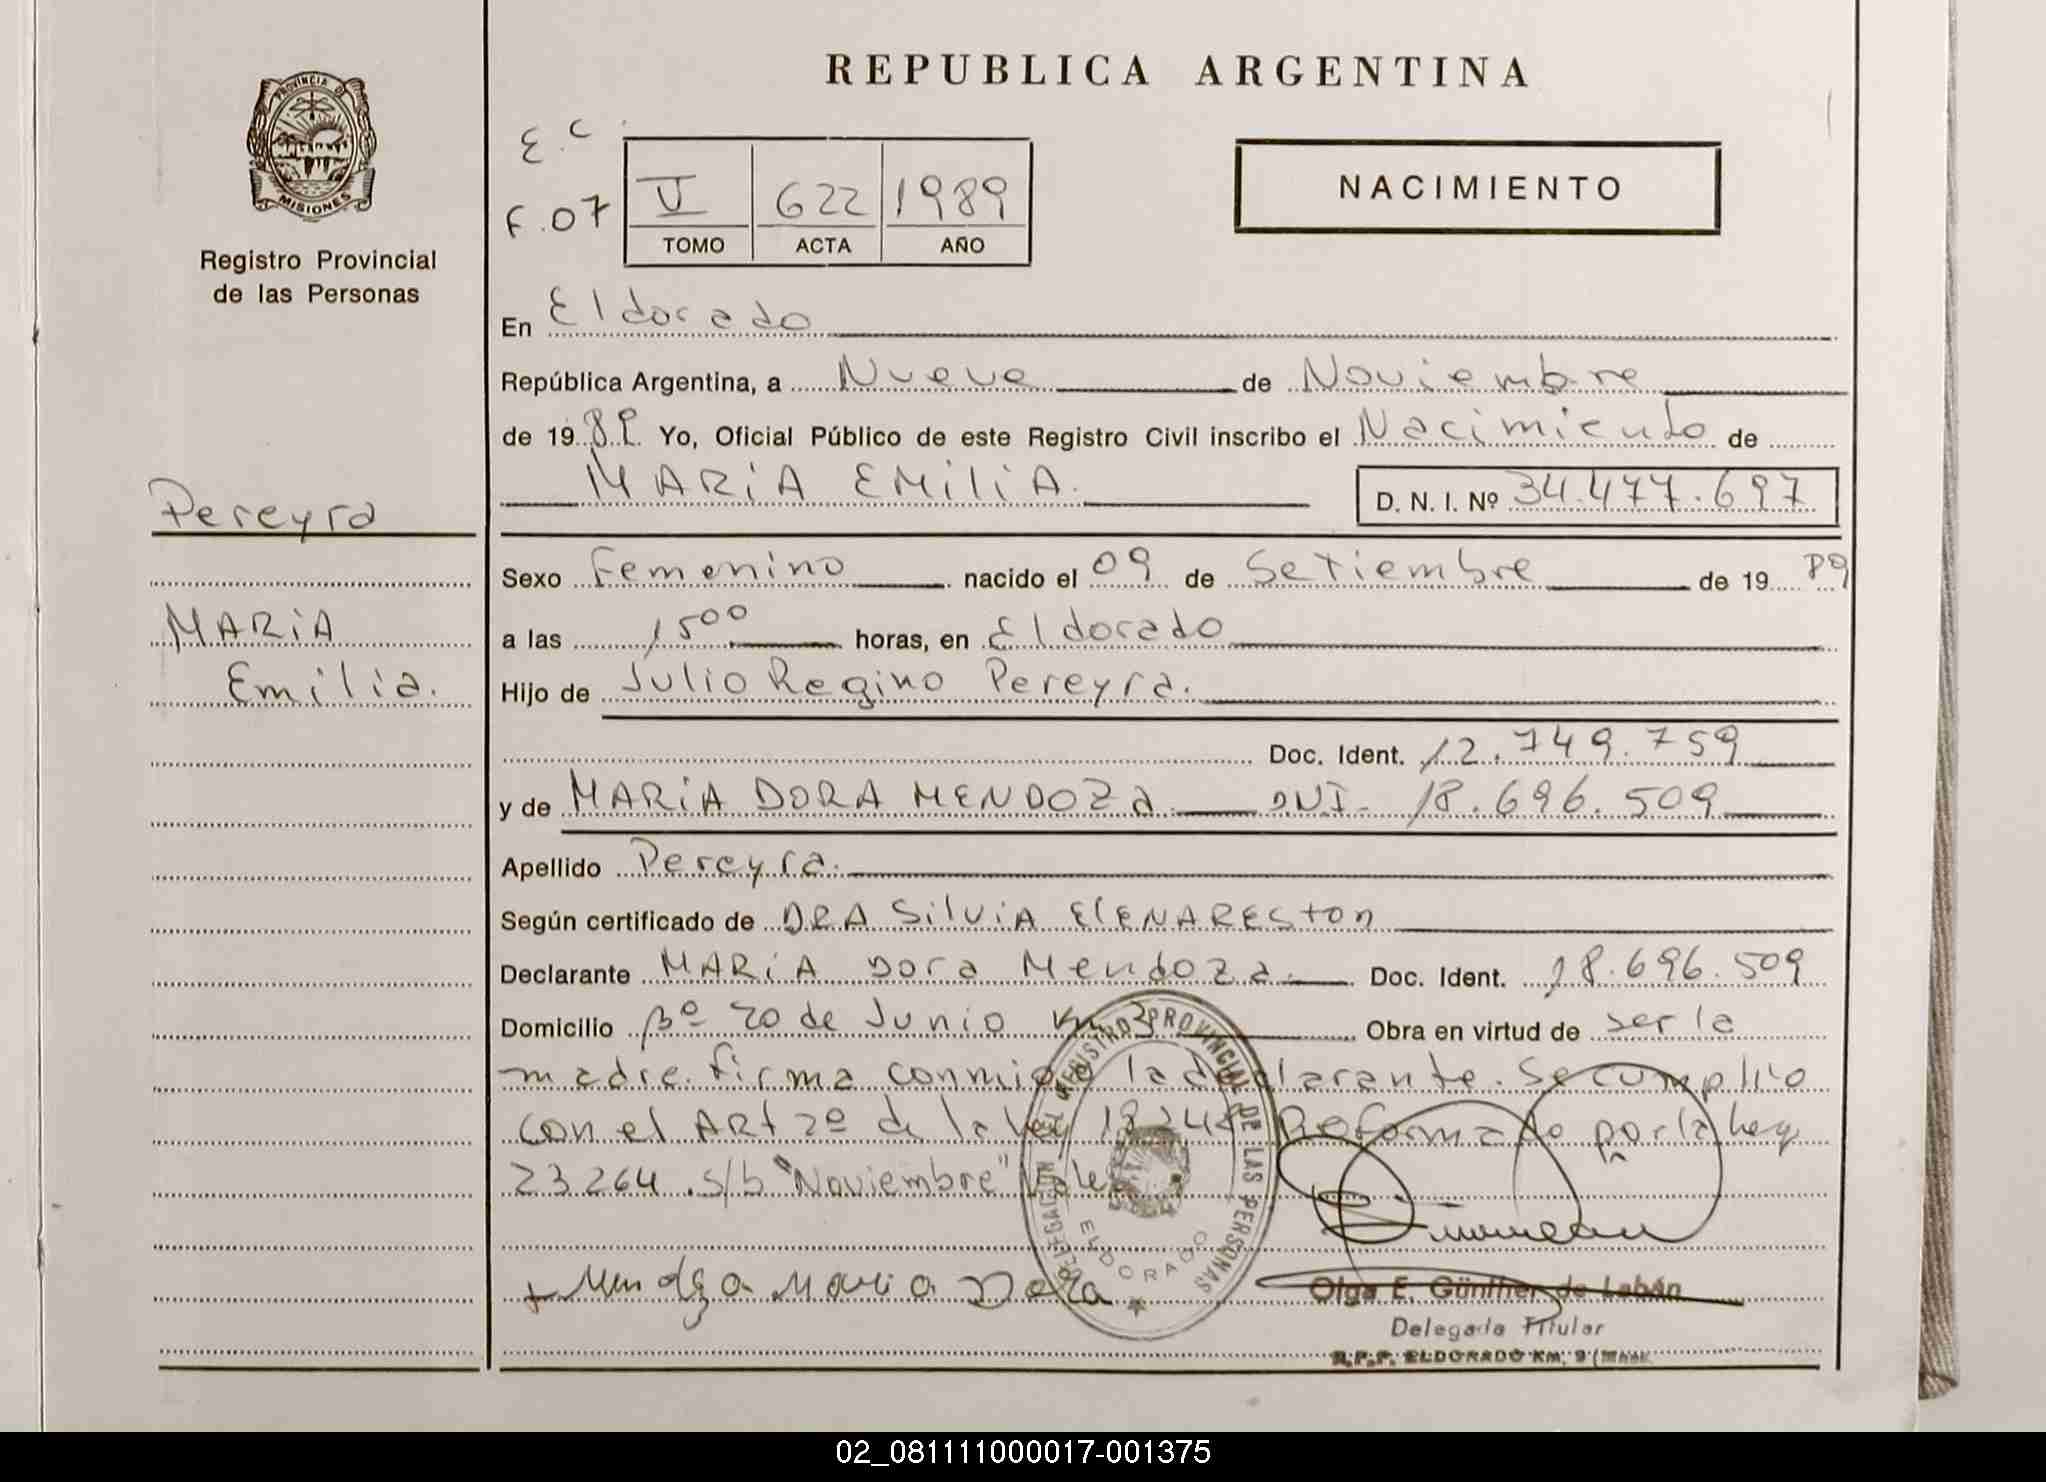 REPUBLICA ARGENTINA
PROVINCIA DE
MISIONES
Registro Provincial
de las Personas
E.C.
F.07
V 622 1989
TOMO ACTA AÑO
NACIMIENTO
En Eldorado
República Argentina, a Nueve de Noviembre
de 1989 Yo, Oficial Público de este Registro Civil inscribo el Nacimiento de
MARIA EMILIA. D. N. I. Nº 34.477.697
Pereyra
MARIA
Emilia.
Sexo Femenino nacido el 09 de Setiembre de 1989
a las 1500 horas, en Eldorado
Hijo de Julio Regino Pereyra.
Doc. Ident. 12.749.759
y de MARIA DORA MENDOZA DNI. 18.696.509
Apellido Pereyra.
Según certificado de DRA SilviA ElENA RESton
Declarante MARIA Dora Mendoza. Doc. Ident. 18.696.509
Domicilio Bº 20 de Junio Km 3 Obra en virtud de ser la
madre. firma conmigo la declarante. Se cumplio
con el ARt 2º de la ley 18248 Reformado por la ley
23264. s/b "Noviembre" Vale
+ Mendoza Maria Dora
DELEGACION DEL REGISTRO PROVINCIAL DE LAS PERSONAS
ELDORADO
Olga E. Günther de Labán
Delegada Titular
R.P.P. ELDORADO KM. 9
02_081111000017-001375